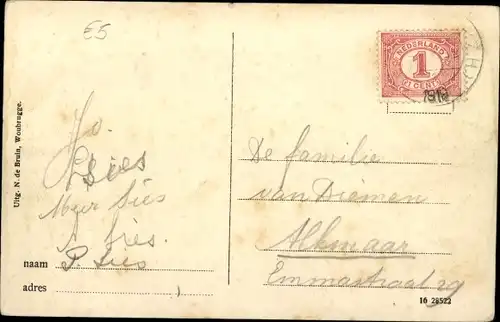 £5
NEDERLAND
1
CENT
1919
Uitg. N. de Bruin, Woubrugge.
Jo.
Sies
Sies
Sies.
naam P. Sies
adres
De familie
van Diemen
Alkmaar
Emmastraat 29
16 28522